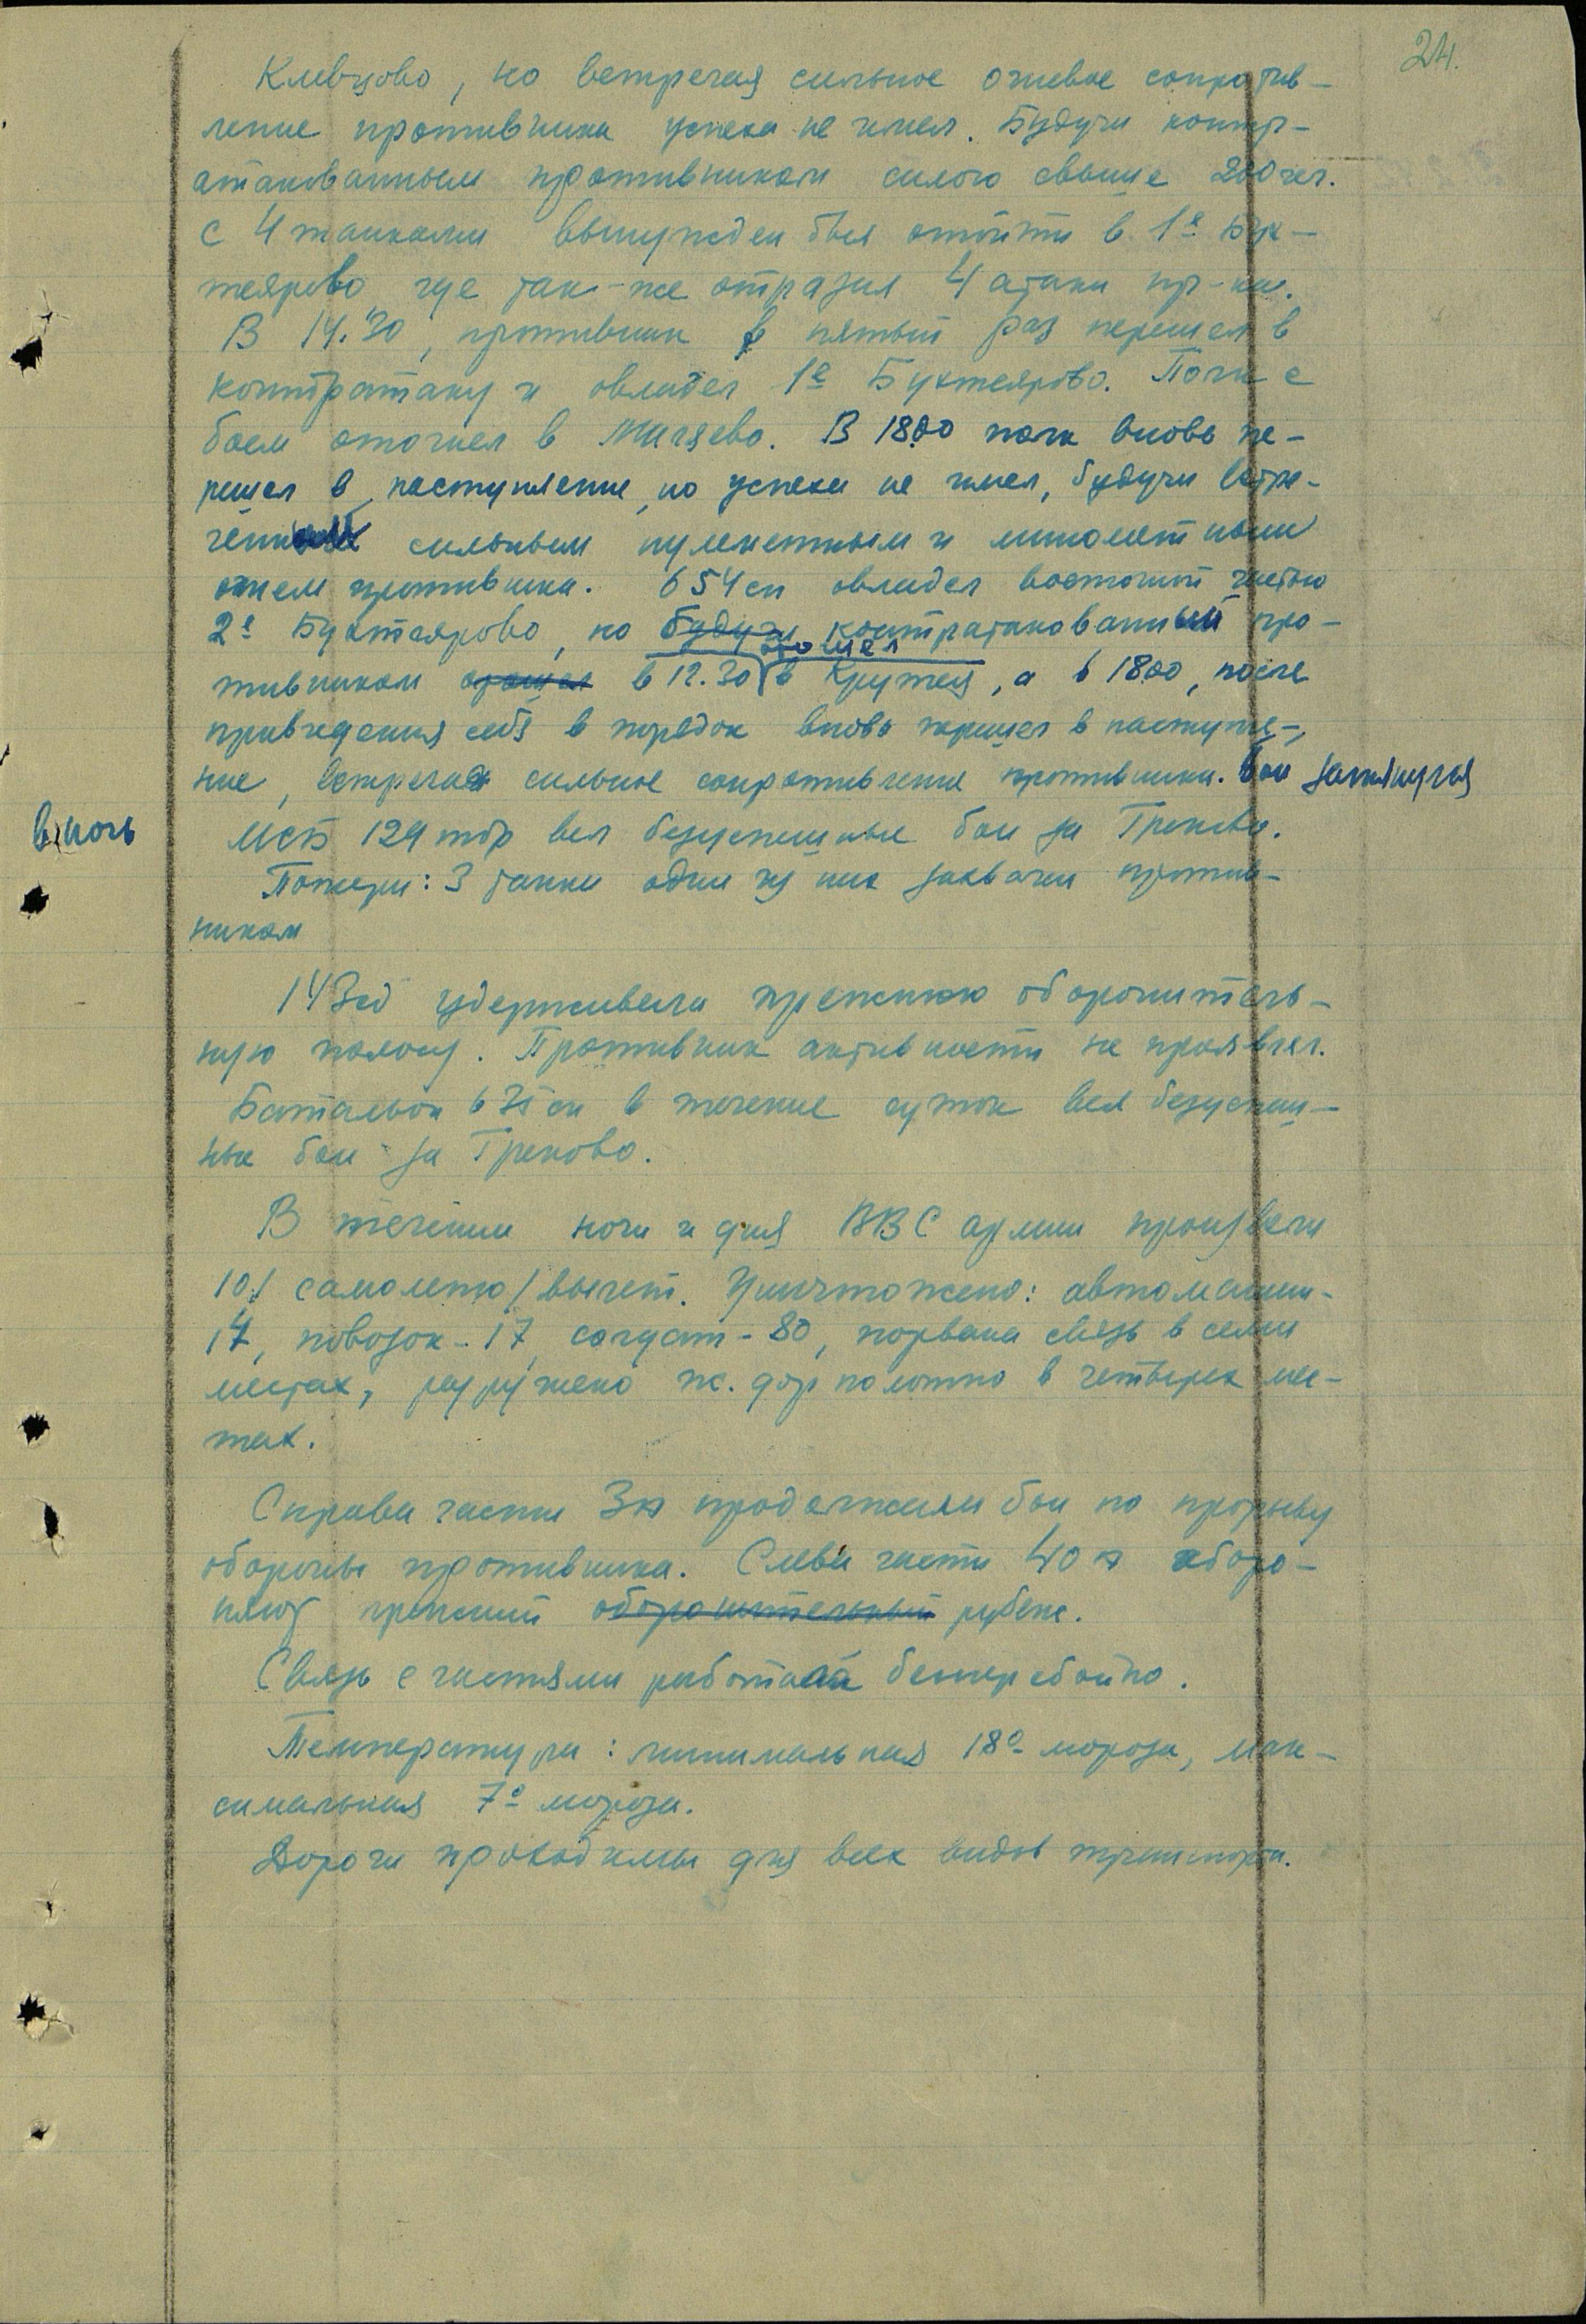 24.
Клевцово, но встречая сильное огневое сопротив-
ление противника успеха не имел. Будучи контр-
атакованным противником силою свыше 200 чел.
с 4 танками вынужден был отойти в 1е Бух-
теярово где так-же отразил 4 атаки пр-ка.
В 14.30, противник в пятый раз перешел в
контратаку и овладел 1е Бухтеярово. Полк с
боем отошел в В 18.00 полк вновь пе-
решел в наступление, но успеха не имел, будучи встре-
ченный сильным пулеметным и минометным
огнем противника. 654 сп овладел восточной частью
2е Бухтеярово, но будучи контратакованный про-
отошел
тивником отошел в 12.30 в Кружки, а в 18.00, после
приведения себя в порядок вновь перешел в наступле-
ние, встречая сильное сопротивление противника. Бой затянулся
в ночь
МСБ 129 тбр вел безуспешные бои за Греково.
Потери: 3 танка один из них захвачен против-
ником
143сд удерживала прежнюю оборонитель-
ную полосу. Противник активности не проявлял.
Батальон 635 сп в течение суток вел безуспеш-
ные бои за Греково.
В течении ночи и дня ВВС армии произвели
101 самолето/вылет. Уничтожено: автомашин-
14, повозок-17, солдат-80, порвана связь в семи
местах, разрушено ж. дор полотно в четырех мес-
тах.
Справа части 3А продолжали бои по прорыву
обороны противника. Слева части 40А оборо-
няют прежний оборонительный рубеж.
Связь с частями работала бесперебойно.
Температура: минимальная 18° мороза, мак-
симальная 7° мороза.
Дороги проходимы для всех видов транспорта.